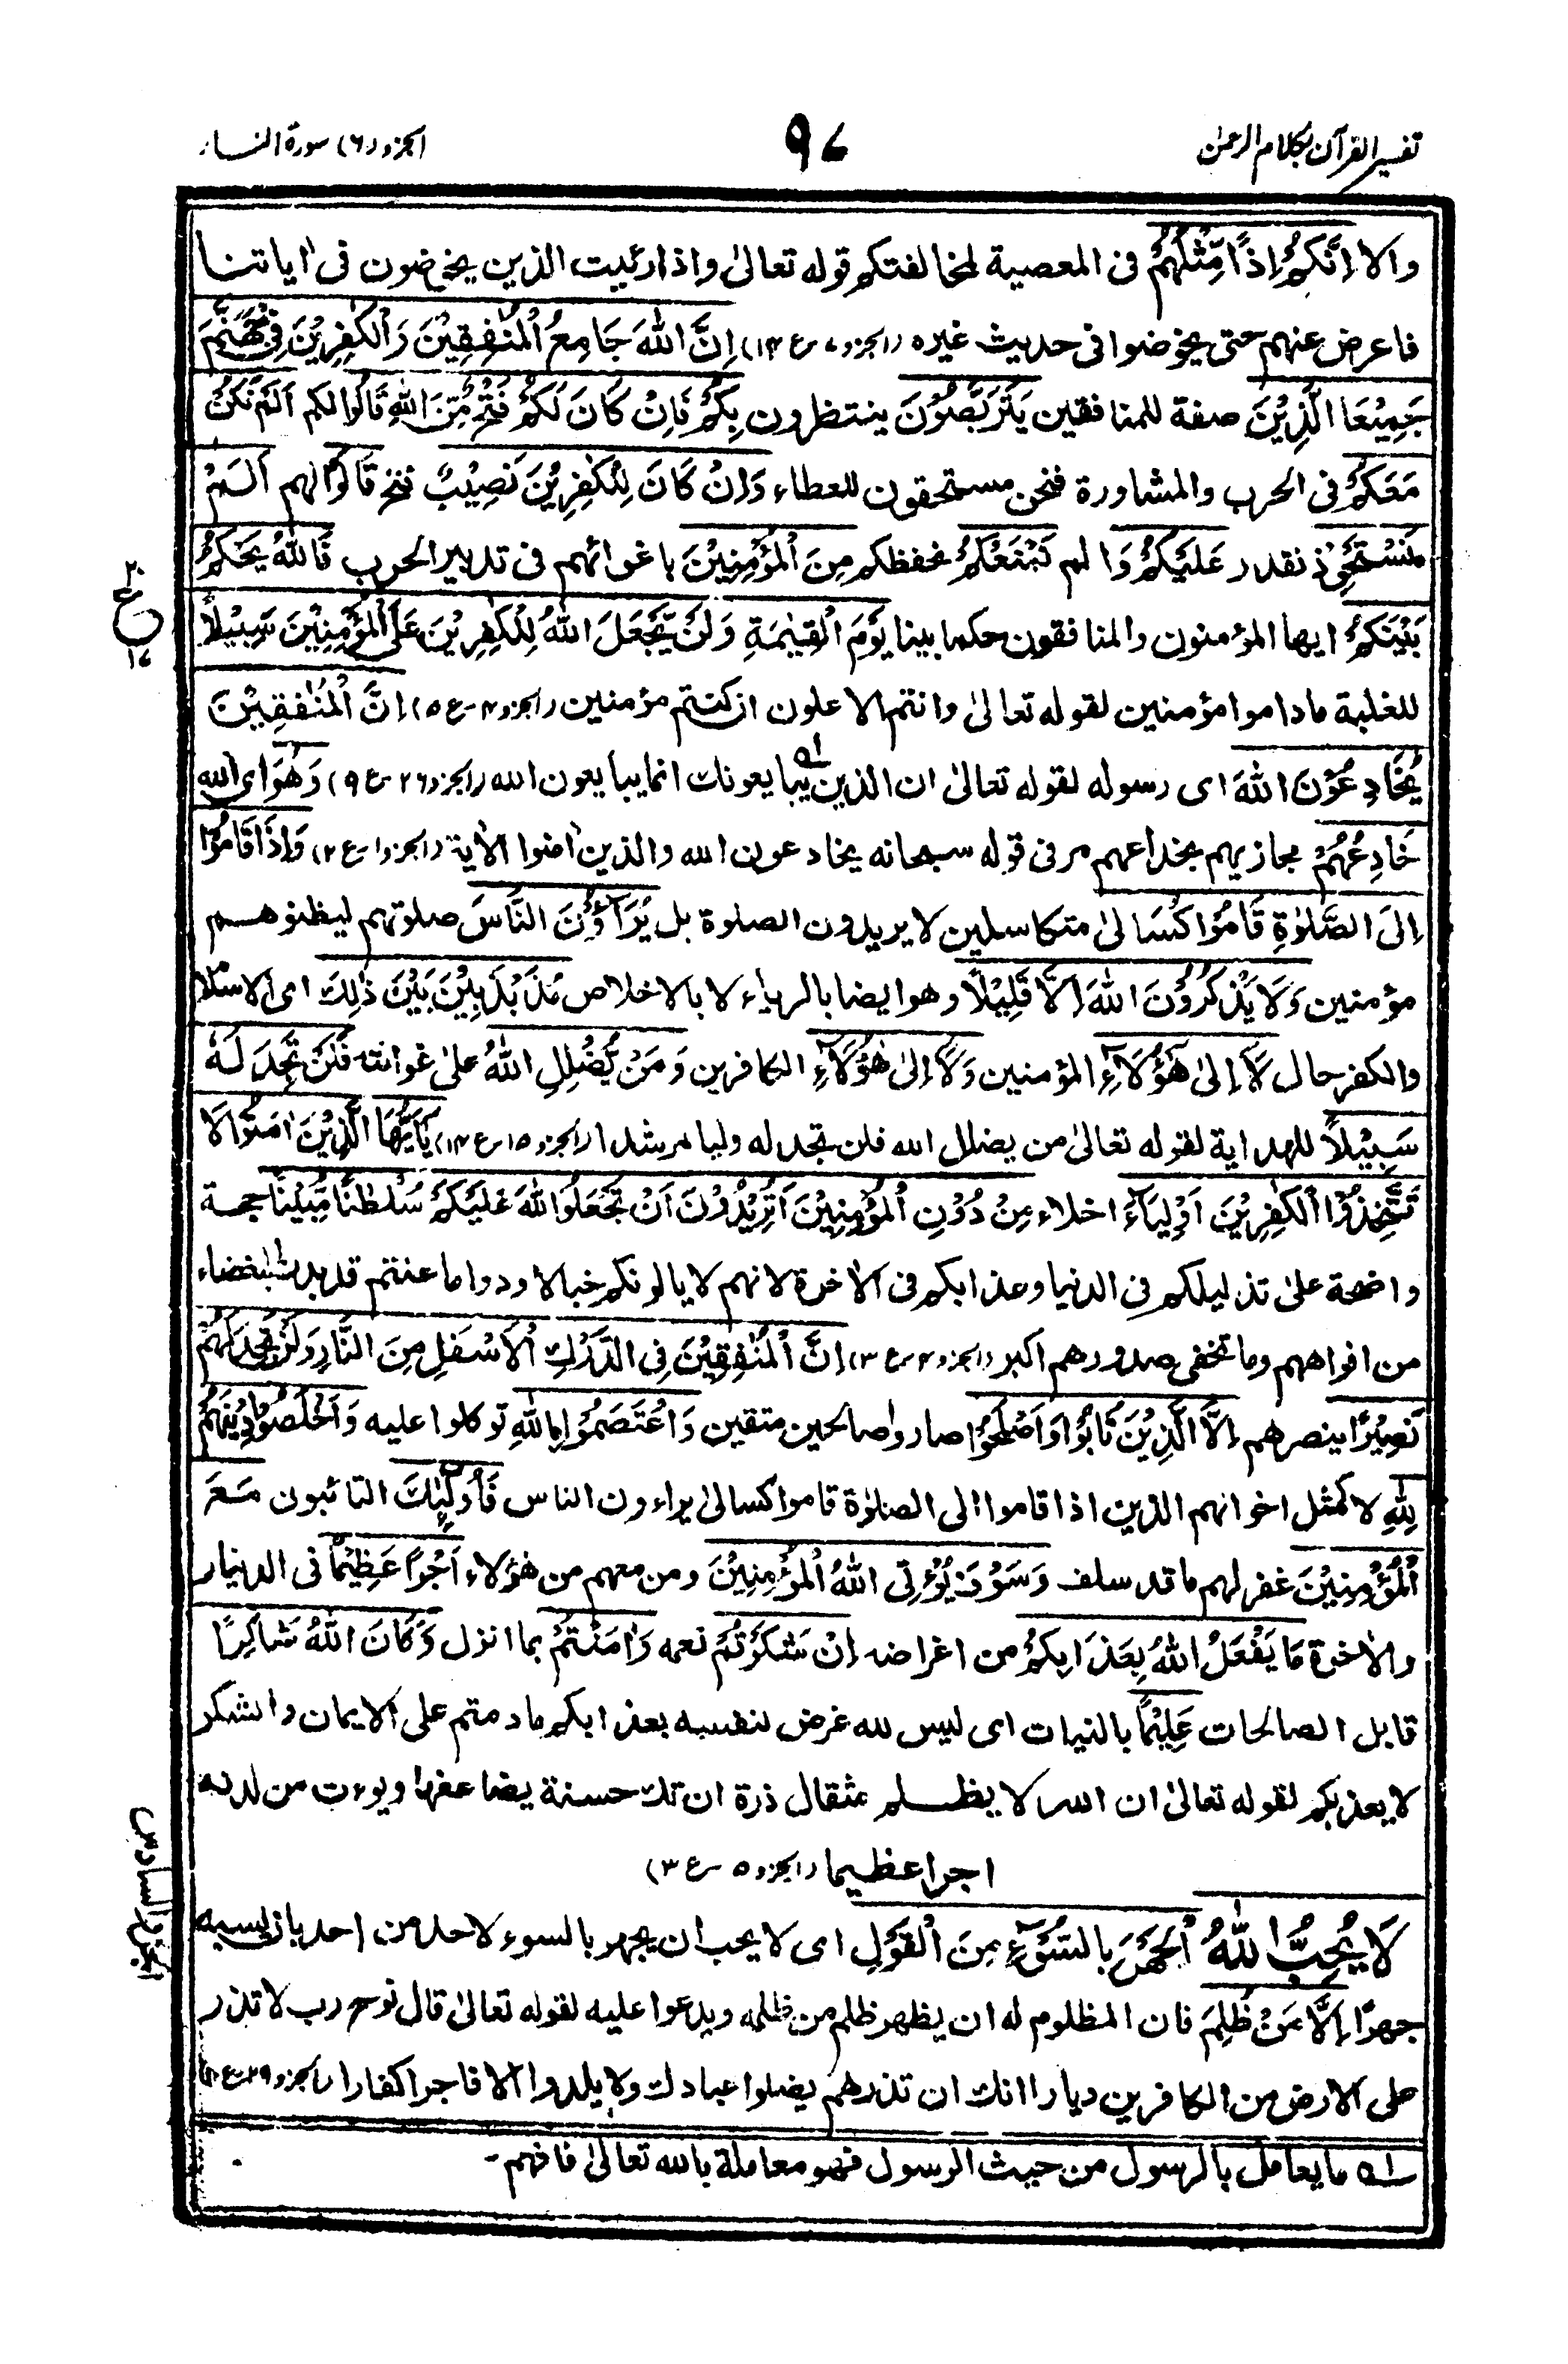 تفسير القرآن بكلام الرحمن
٩٧
الجزو (٦) سورة النساء
والا اِنَّكُمْ اِذًا مِّثْلُهُمْ فى المعصية لمخالفتكم قوله تعالىٰ واذا رئيت الذين يخوضون فى اٰياتنا
فاعرض عنهم حتى يخوضوا فى حديث غيره (الجزو ٧ ع ١٤) اِنَّ اللهَ جَامِعُ الْمُنٰفِقِيْنَ وَالْكٰفِرِيْنَ فِىْ جَهَنَّمَ
جَمِيْعَا الَّذِيْنَ صفة للمنافقين يَتَرَبَّصُوْنَ ينتظرون بِكُمْ فَاِنْ كَانَ لَكُمْ فَتْحٌ مِّنَ اللهِ قَالُوْا لكم اَلَمْ نَكُنْ
مَعَكُمْ فى الحرب والمشاورة فنحن مستحقون للعطاء وَاِنْ كَانَ لِلْكٰفِرِيْنَ نَصِيْبٌ فتح قَالُوْا لهم اَلَمْ
نَسْتَحْوِذْ نقدر عَلَيْكُمْ وَا لم نَمْنَعْكُمْ نحفظكم مِنَ الْمُؤْمِنِيْنَ باغوائهم فى تدبير الحرب فَاللهُ يَحْكُمُ
بَيْنَكُمْ ايها المؤمنون والمنافقون حكما بينا يَوْمَ الْقِيٰمَةِ وَلَنْ يَّجْعَلَ اللهُ لِلْكٰفِرِيْنَ عَلَى الْمُؤْمِنِيْنَ سَبِيْلًا
للغلبة ماداموا مؤمنين لقوله تعالىٰ وانتم الاعلون ان كنتم مؤمنين (الجزو ٤ ع ٥) اِنَّ الْمُنٰفِقِيْنَ
يُخٰدِعُوْنَ اللهَ اى رسوله لقوله تعالىٰ ان الذين يبايعونك انما يبايعون الله (الجزو ٢٦ ع ٩) وَهُوَ اى الله
خَادِعُهُمْ مجازيهم بخداعهم مر فى قوله سبحانه يخادعون الله والذين اٰمنوا الاٰية (الجزو ١ ع ٢) وَاِذَا قَامُوْا
اِلَى الصَّلٰوةِ قَامُوْا كُسَالىٰ متكاسلين لا يريدون الصلوة بل يُرَآءُوْنَ النَّاسَ صلوتهم ليظنوهم
مؤمنين وَلَا يَذْكُرُوْنَ اللهَ اِلَّا قَلِيْلًا وهو ايضا بالرياء لا بالاخلاص مُذَبْذَبِيْنَ بَيْنَ ذٰلِكَ اى الاسلام
والكفر حال لَآ اِلىٰ هٰٓؤُلَآءِ المؤمنين وَلَآ اِلىٰ هٰٓؤُلَآءِ الكافرين وَمَنْ يُّضْلِلِ اللهُ علىٰ غوائته فَلَنْ تَجِدَ لَهٗ
سَبِيْلًا للهداية لقوله تعالىٰ من يضلل الله فلن تجد له وليا مرشدا (الجزو ١٥ ع ١٤) يٰٓاَيُّهَا الَّذِيْنَ اٰمَنُوْا لَا
تَتَّخِذُوا الْكٰفِرِيْنَ اَوْلِيَآءَ اخلاء مِنْ دُوْنِ الْمُؤْمِنِيْنَ اَتُرِيْدُوْنَ اَنْ تَجْعَلُوْا لِلّٰهِ عَلَيْكُمْ سُلْطٰنًا مُّبِيْنًا حجة
واضحة علىٰ تذليلكم فى الدنيا وعذابكم فى الاٰخرة لانهم لا يالونكم خبالا ودوا ما عنتم قد بدت البغضاء
من افواههم وما تخفى صدورهم اكبر (الجزو ٤ ع ٣) اِنَّ الْمُنٰفِقِيْنَ فِى الدَّرْكِ الْاَسْفَلِ مِنَ النَّارِ وَلَنْ تَجِدَ لَهُمْ
نَصِيْرًا ينصرهم اِلَّا الَّذِيْنَ تَابُوْا وَاَصْلَحُوْا صاروا صالحين متقين وَاعْتَصَمُوْا بِاللهِ توكلوا عليه وَاَخْلَصُوْا دِيْنَهُمْ
لِلّٰهِ لا كمثل اخوانهم الذين اذا قاموا الى الصلوٰة قاموا كسالىٰ يراءون الناس فَاُولٰٓئِكَ التائبون مَعَ
الْمُؤْمِنِيْنَ غفر لهم ما قد سلف وَسَوْفَ يُؤْتِى اللهُ الْمُؤْمِنِيْنَ ومن معهم من هٰؤلاء اَجْرًا عَظِيْمًا فى الدنيا
والاٰخرة مَا يَفْعَلُ اللهُ بِعَذَابِكُمْ من اغراضه اِنْ شَكَرْتُمْ نعمه وَاٰمَنْتُمْ بما انزل وَكَانَ اللهُ شَاكِرًا
قابل الصالحات عَلِيْمًا بالنيات اى ليس لله غرض لنفسه بعذابكم مادمتم على الايمان والشكر
لا يعذبكم لقوله تعالىٰ ان الله لا يظلم مثقال ذرة ان تك حسنة يضاعفها ويوءت من لدنه
اجرا عظيما (الجزو ٥ ع ٣)
لَا يُحِبُّ اللهُ الْجَهْرَ بِالسُّوْٓءِ مِنَ الْقَوْلِ اى لا يحب ان يجهر بالسوء لاحد من احد بان يسبه
جهرًا اِلَّا مَنْ ظُلِمَ فان المظلوم له ان يظهر ظلم من ظلمه ويدعوا عليه لقوله تعالىٰ قال نوح رب لا تذر
على الارض من الكافرين ديارا انك ان تذرهم يضلوا عبادك ولا يلدوا الا فاجرا كفارا (الجزو ٢٩ ع ١٠)
له ما يعامل بالرسول من حيث الرسول فهو معاملة بالله تعالىٰ فافهم -
ع
١٧
الجزو السادس